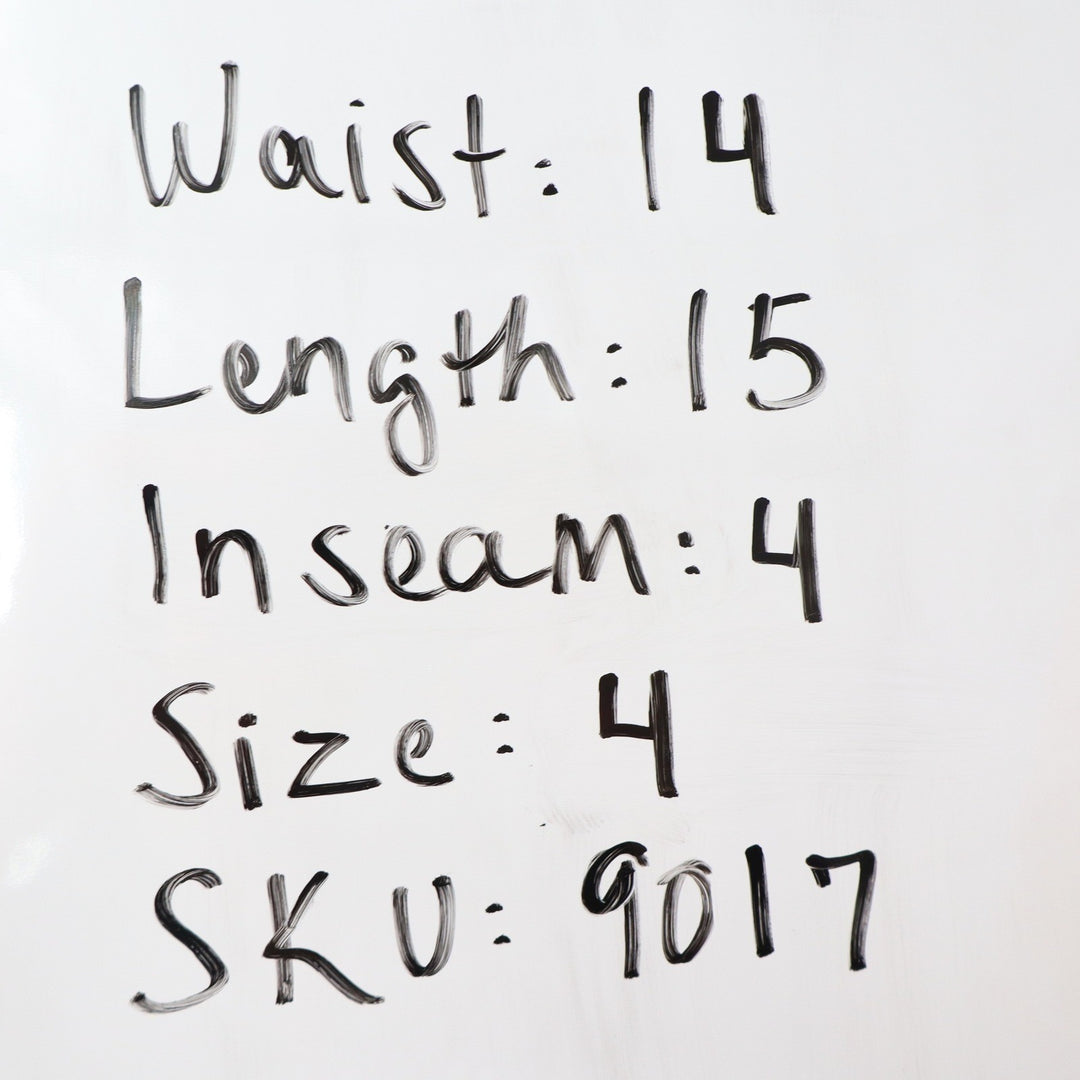 Waist: 14
Length: 15
Inseam: 4
Size: 4
SKU: 9017